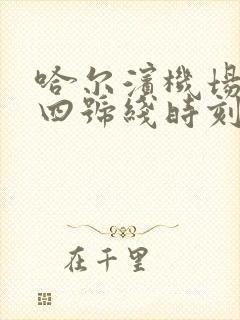 哈尔濱機場
四號綫時刻
在千里